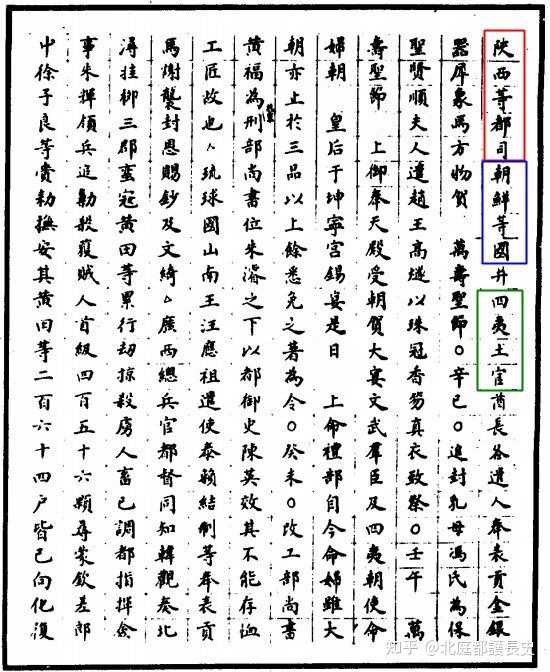 陝西等都司朝鮮等國并四夷土官酋長各遣人奉表貢金銀
器犀象馬方物賀 萬壽聖節○辛巳○追封乳母馮氏為保
聖賢順夫人遣趙王高燧以珠冠香勞真衣致祭○壬午 萬
壽聖節 上御奉天殿受朝賀大宴文武羣臣及四夷朝使命
婦朝 皇后于坤寧宮錫宴是日 上命禮部自今命婦雖大
朝亦止於三品以上餘悉免之著為令○癸未○改工部尚書
黃福為刑部尚書位朱濬之下以都御史陳英效其不能存恤
工匠故也△琉球國山南王汪應祖遣使泰賴結制等奉表貢
馬謝襲封恩賜鈔及文綺△廣西總兵官都督同知韓觀奏北
潯桂柳三郡蠻寇黃田等累行劫掠殺虜人畜已調都指揮僉
事朱輝領兵追勦殺獲賊人首級四百五十六顆尋蒙欽差郎
中徐子良等賫勑撫安其黃田等二百六十四戶皆已向化復
知乎 @北庭都護長史